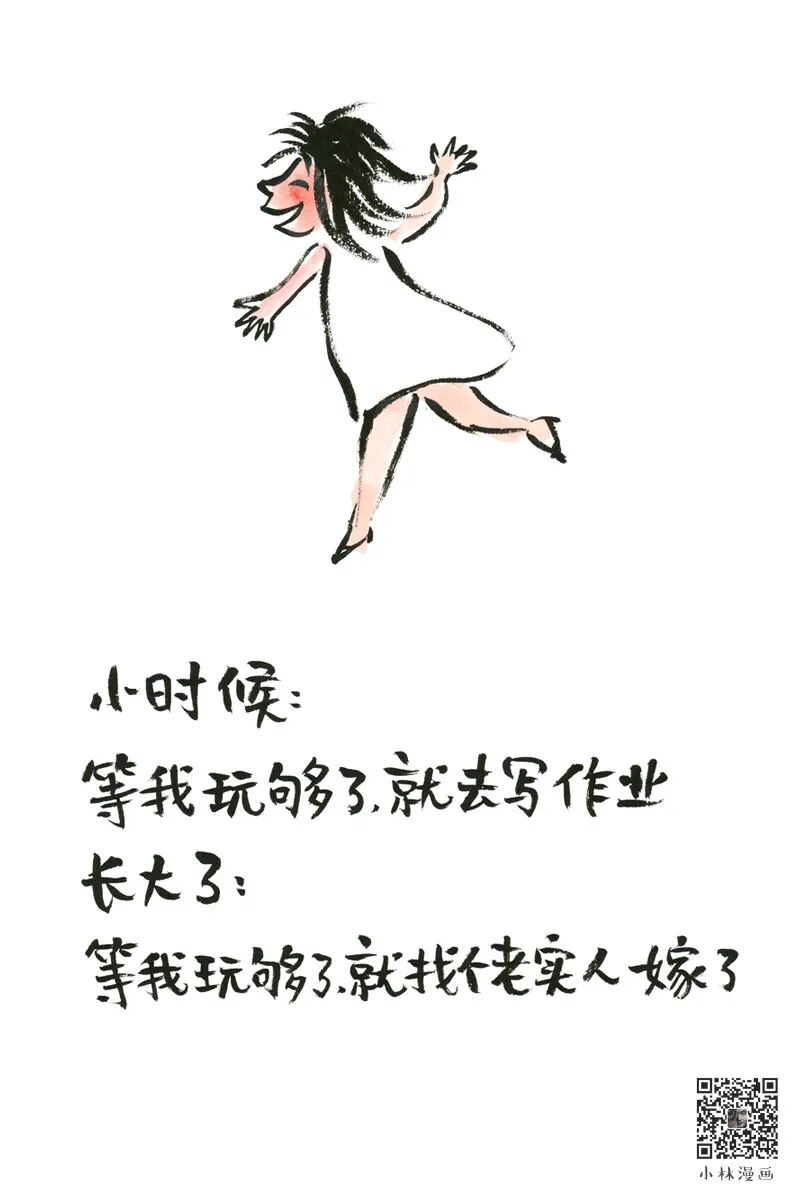 小时候：
等我玩够了，就去写作业
长大了：
等我玩够了，就找个老实人嫁了
小林漫画